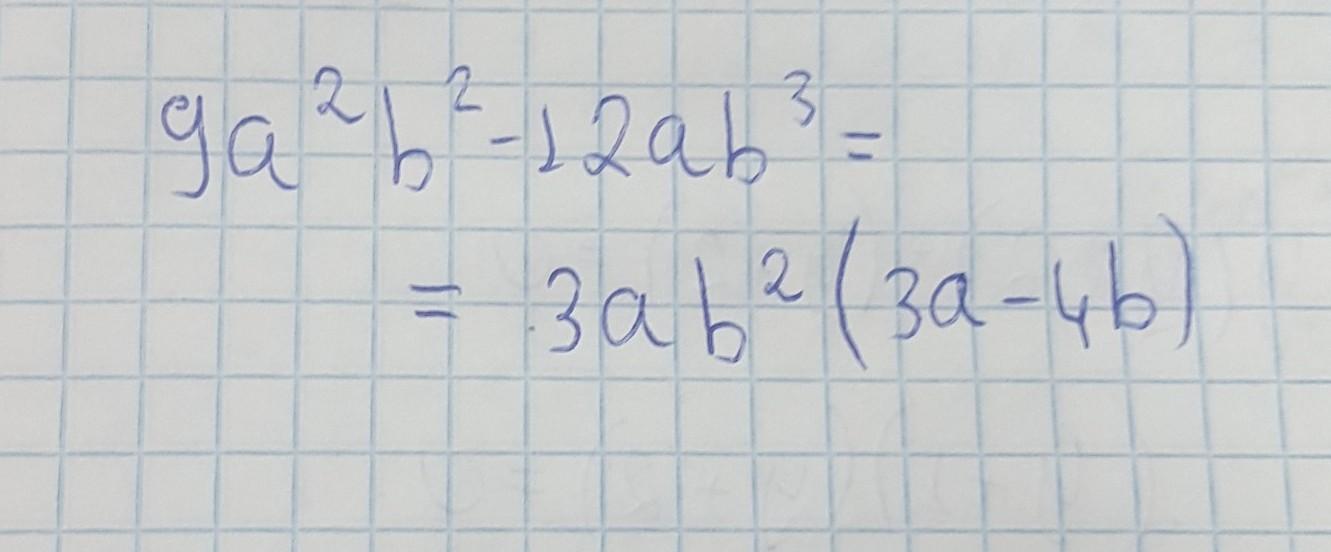 9a²b²-12ab³=
= 3ab²(3a-4b)